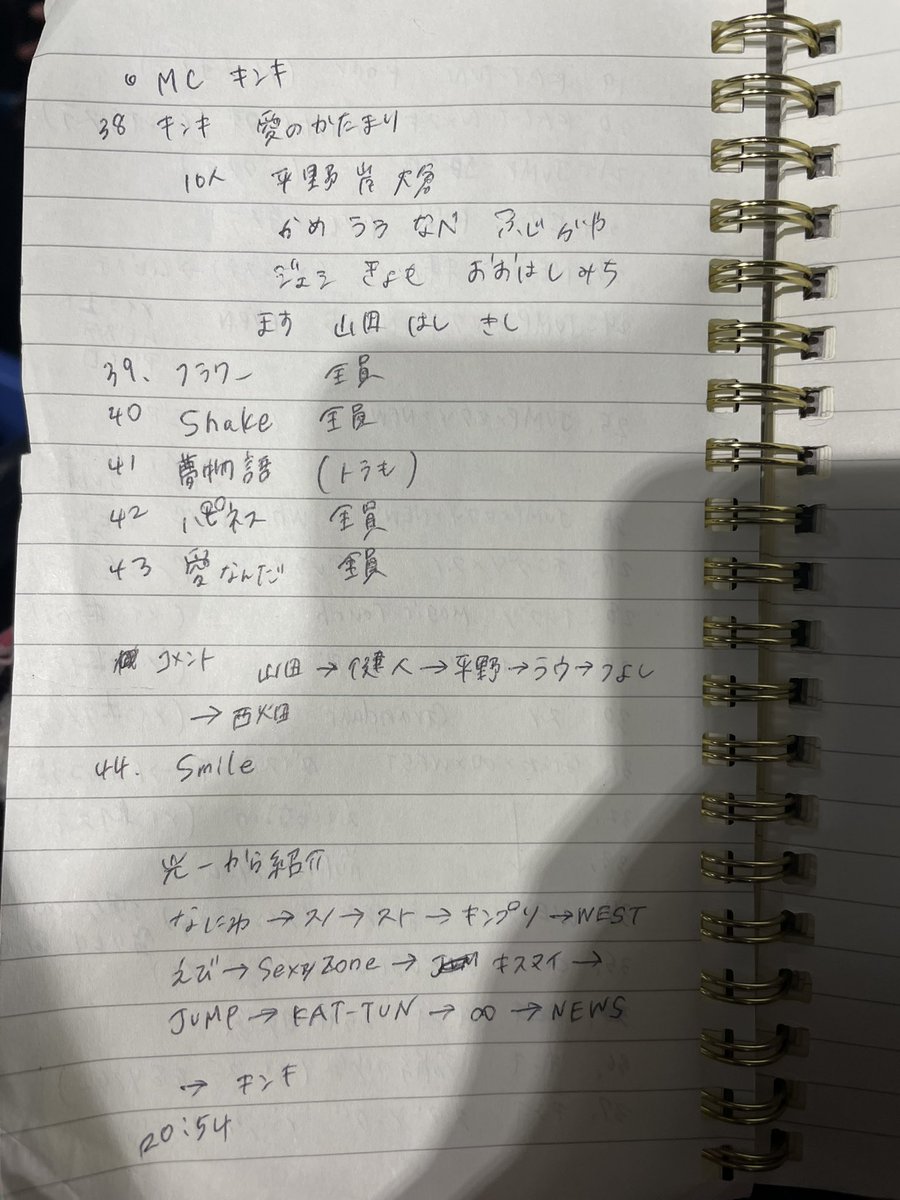 ◎ MC キンキ
38 キンキ 愛のかたまり
10人 平野 岩 大倉
かめ ラウ なべ ふじがや
ジェシ きょも おおはしみち
ます 山田 はし きし
39. フラワー 全員
40 Shake 全員
41 夢物語 (トラも)
42 ハピネス 全員
43 愛なんだ 全員
コメント 山田→健人→平野→ラウ→つよし
→西畑
44. Smile
光一から紹介
なにわ→スノ→スト→キンプリ→WEST
えび→SexyZone→ キスマイ→
JUMP→KAT-TUN→∞→NEWS
→ キンキ
20:54